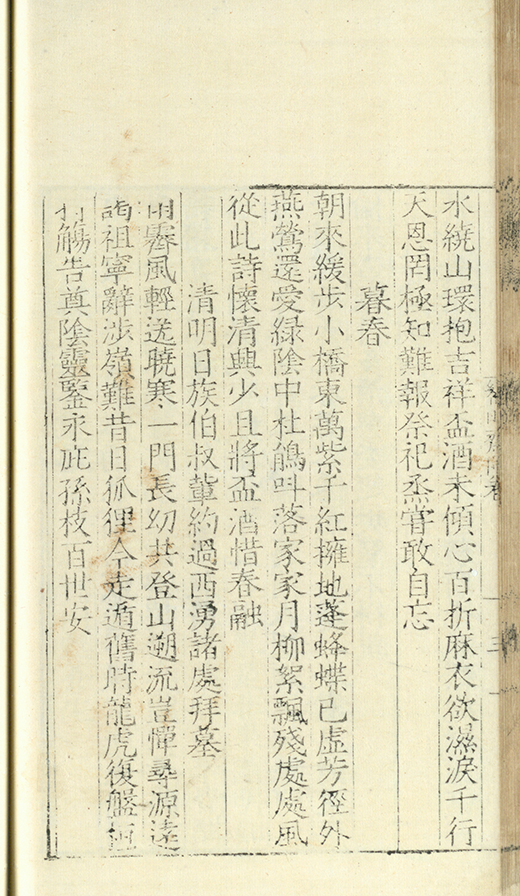 水繞山環抱吉祥盃酒未傾心百折麻衣欲濕淚千行
天恩罔極知難報祭祀烝嘗敢自忘
暮春
朝來緩步小橋東萬紫千紅擁地蓬蜂蝶已虛芳徑外
燕鶯還愛綠陰中杜鵑呌落家家月柳絮飄殘處處風
從此詩懷清興少且將盃酒惜春融
清明日族伯叔輩約過西湧諸處拜墓
雨霽風輕送曉寒一門長幼共登山遡流豈憚尋源遠
祖寧辭涉嶺難昔日狐狸今走遁舊時龍虎復盤
觴告奠陰靈鑒永庇孫枝百世安